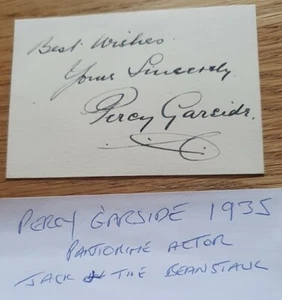 Best Wishes
Yours Sincerely
Percy Garside.
PERCY GARSIDE 1935
PANTOMIME ACTOR
JACK & THE BEANSTALK